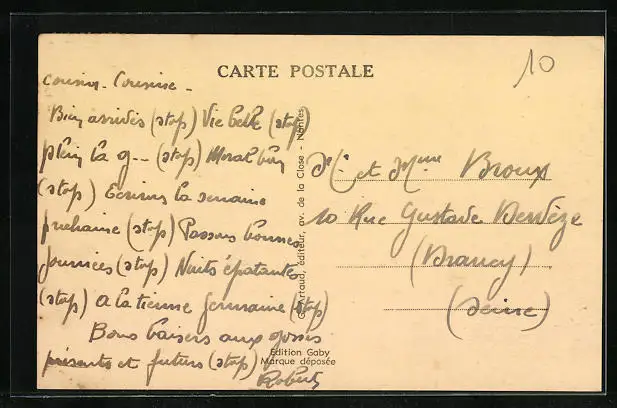 CARTE POSTALE
10
cousin - Cousine -
Bien arrivés (stop) Vie belle (stop)
plein la g-- (stop) Moral bon
(stop) Ecrirons la semaine
prochaine (stop) Passons bonnes
journées (stop) Nuits épatantes
(stop) A la tienne Germaine (stop)
Bons baisers aux gosses
présents et futurs (stop)
Robert
G. Artaud, éditeur, av. de la Close - Nantes
Edition Gaby
Marque déposée
Mr et Mme Broux
10 Rue Gustave
(Drancy)
(Seine)